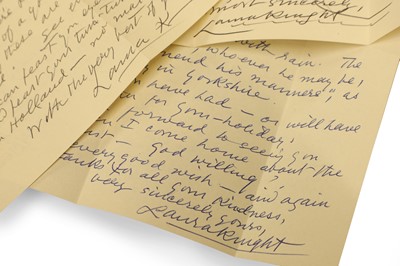 of a go
these are
can feast y
feast your
no ma
n Holland —
With the very best of
Laura K
most sincerely,
Laura Knight
with rain. The
whoever he may be,
mend his manners", as
in Yorkshire.
have had — or will have
for your holiday,
forward to seeing you
I come home about the
God willing?
every good wish — and again
thanks for all your kindness,
very sincerely yours,
Laura Knight